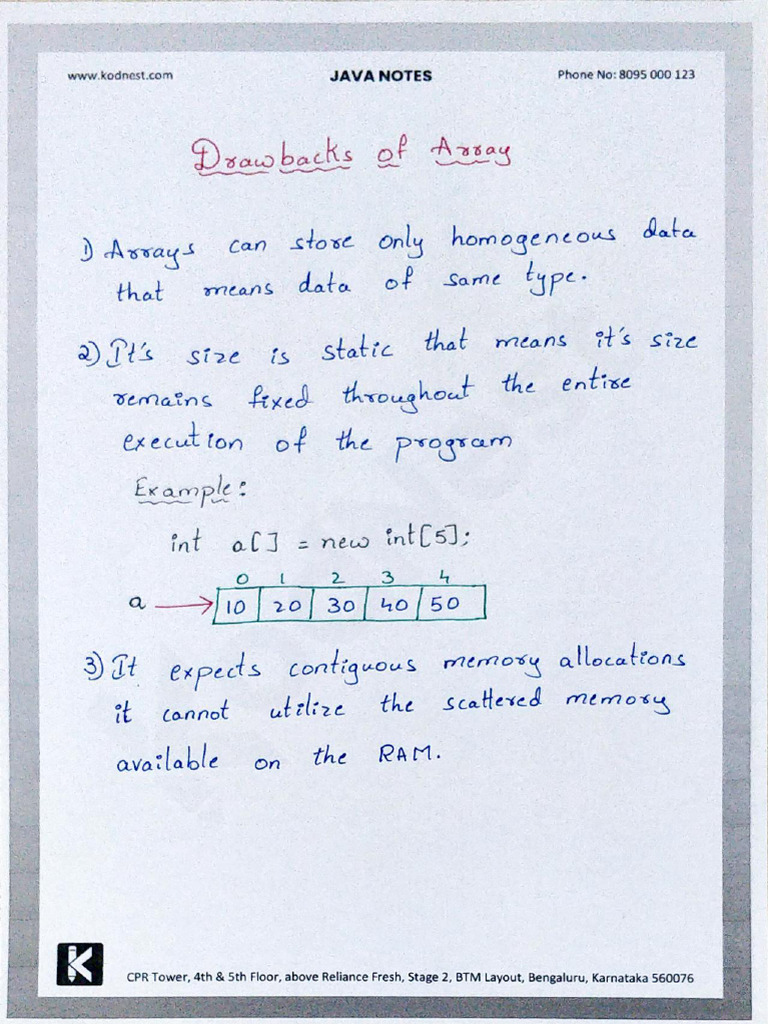 www.kodnest.com JAVA NOTES Phone No: 8095 000 123
Drawbacks of Array
1) Arrays can store only homogeneous data
that means data of same type.
2) It's size is static that means it's size
remains fixed throughout the entire
execution of the program
Example:
int a[] = new int[5];
0 1 2 3 4
a → 10 20 30 40 50
3) It expects contiguous memory allocations
it cannot utilize the scattered memory
available on the RAM.
K
CPR Tower, 4th & 5th Floor, above Reliance Fresh, Stage 2, BTM Layout, Bengaluru, Karnataka 560076